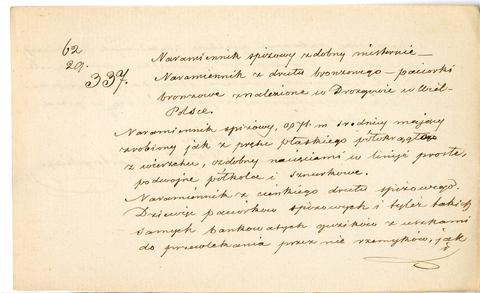 62
29.
337.
Naramiennik spiżowy zdobny misternie —
Naramiennik z drutu bronzowego — paciorki
bronzowe znalezione w Drozgowie w Wiel-
Polsce.
Naramiennik spiżowy, 0,076 m średnicy mający
zrobiony jak z pręta płaskiego półokrągło
z wierzchu, ozdobny nacięciami w linije proste,
podwójne półkola i sznurkowe.
Naramiennik z cienkiego drutu spiżowego.
Dziewięć paciórków spiżowych i tyleż takich
samych bankowatych guzików z uszkami
do przewlekania przez nie rzemyków, jak